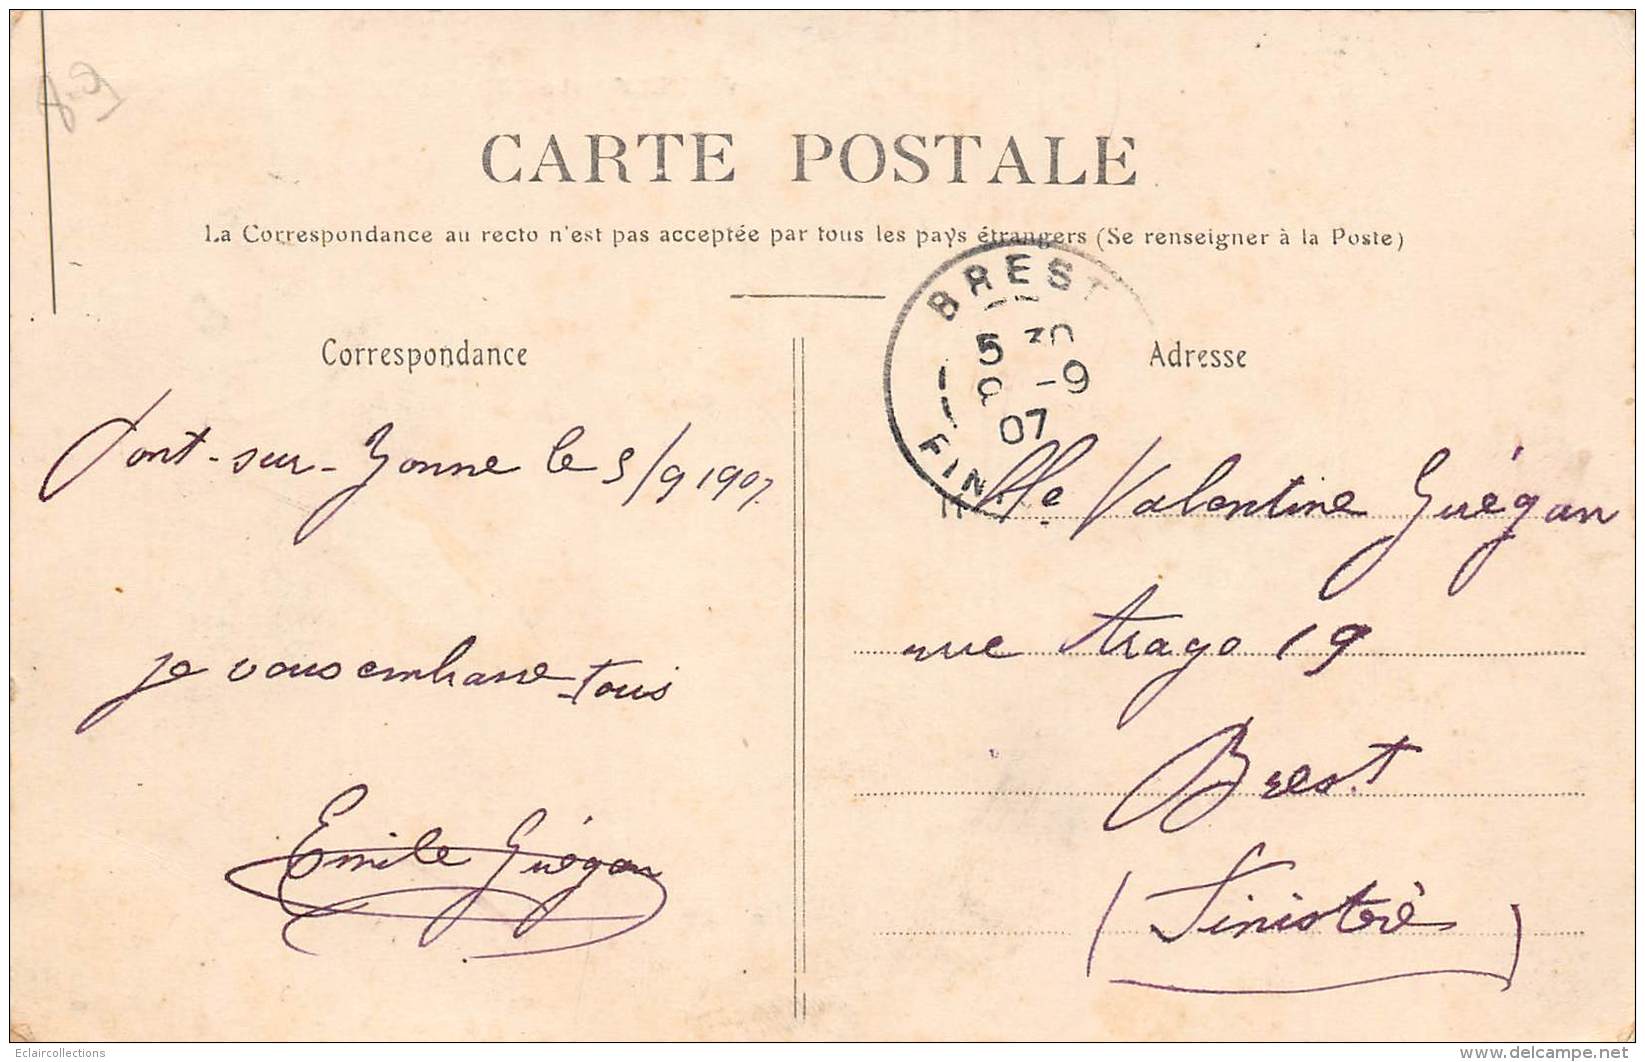 CARTE POSTALE
La Correspondance au recto n'est pas acceptée par tous les pays étrangers (Se renseigner à la Poste)
BREST
5 30
-9
07
FIN
Correspondance
Pont-sur-Yonne le 5/9 1907
je vous embrasse tous
Emile Guégan
Adresse
Mlle Valentine Guégan
rue Arago 19
Brest
(Finistère)
Eclaircollections
delcampe.net